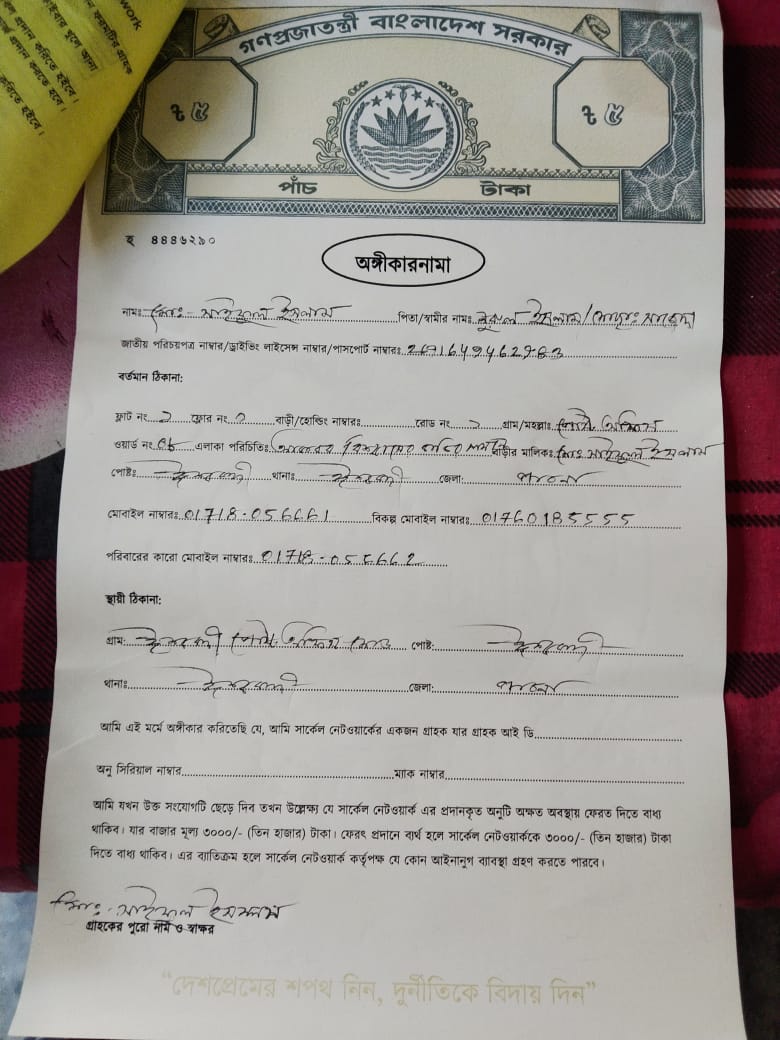 work
গণপ্রজাতন্ত্রী বাংলাদেশ সরকার
৳ ৫
৳ ৫
পাঁচ টাকা
হ ৪৪৪৬২৯০
অঙ্গীকারনামা
নামঃ মোঃ- সাইফুল ইসলাম পিতা/স্বামীর নামঃ নুরুল ইসলাম/মোছাঃ
জাতীয় পরিচয়পত্র নাম্বার/ড্রাইভিং লাইসেন্স নাম্বার/পাসপোর্ট নাম্বারঃ
বর্তমান ঠিকানা:
ফ্লাট নং ফ্লোর নং বাড়ী/হোল্ডিং নাম্বারঃ রোড নং গ্রাম/মহল্লাঃ পোস্ট অফিস
ওয়ার্ড নং এলাকা পরিচিতিঃ বাড়ীর মালিকঃ মোঃ সাইফুল ইসলাম
পোষ্টঃ ঈশ্বরদী থানাঃ ঈশ্বরদী জেলা: পাবনা
মোবাইল নাম্বারঃ 01718-056661 বিকল্প মোবাইল নাম্বারঃ 01760185555
পরিবারের কারো মোবাইল নাম্বারঃ
স্থায়ী ঠিকানা:
গ্রাম: ঈশ্বরদী পোস্ট অফিস মোড় পোষ্ট: ঈশ্বরদী
থানাঃ ঈশ্বরদী জেলা: পাবনা
আমি এই মর্মে অঙ্গীকার করিতেছি যে, আমি সার্কেল নেটওয়ার্কের একজন গ্রাহক যার গ্রাহক আই ডি
অনু সিরিয়াল নাম্বার ম্যাক নাম্বার
আমি যখন উক্ত সংযোগটি ছেড়ে দিব তখন উল্লেক্ষ্য যে সার্কেল নেটওয়ার্ক এর প্রদানকৃত অনুটি অক্ষত অবস্থায় ফেরত দিতে বাধ্য
থাকিব। যার বাজার মূল্য ৩০০০/- (তিন হাজার) টাকা। ফেরৎ প্রদানে ব্যর্থ হলে সার্কেল নেটওয়ার্ককে ৩০০০/- (তিন হাজার) টাকা
দিতে বাধ্য থাকিব। এর ব্যাতিক্রম হলে সার্কেল নেটওয়ার্ক কর্তৃপক্ষ যে কোন আইনানুগ ব্যাবস্থা গ্রহণ করতে পারবে।
মোঃ- সাইফুল ইসলাম
গ্রাহকের পুরো নাম ও স্বাক্ষর
“দেশপ্রেমের শপথ নিন, দুর্নীতিকে বিদায় দিন”